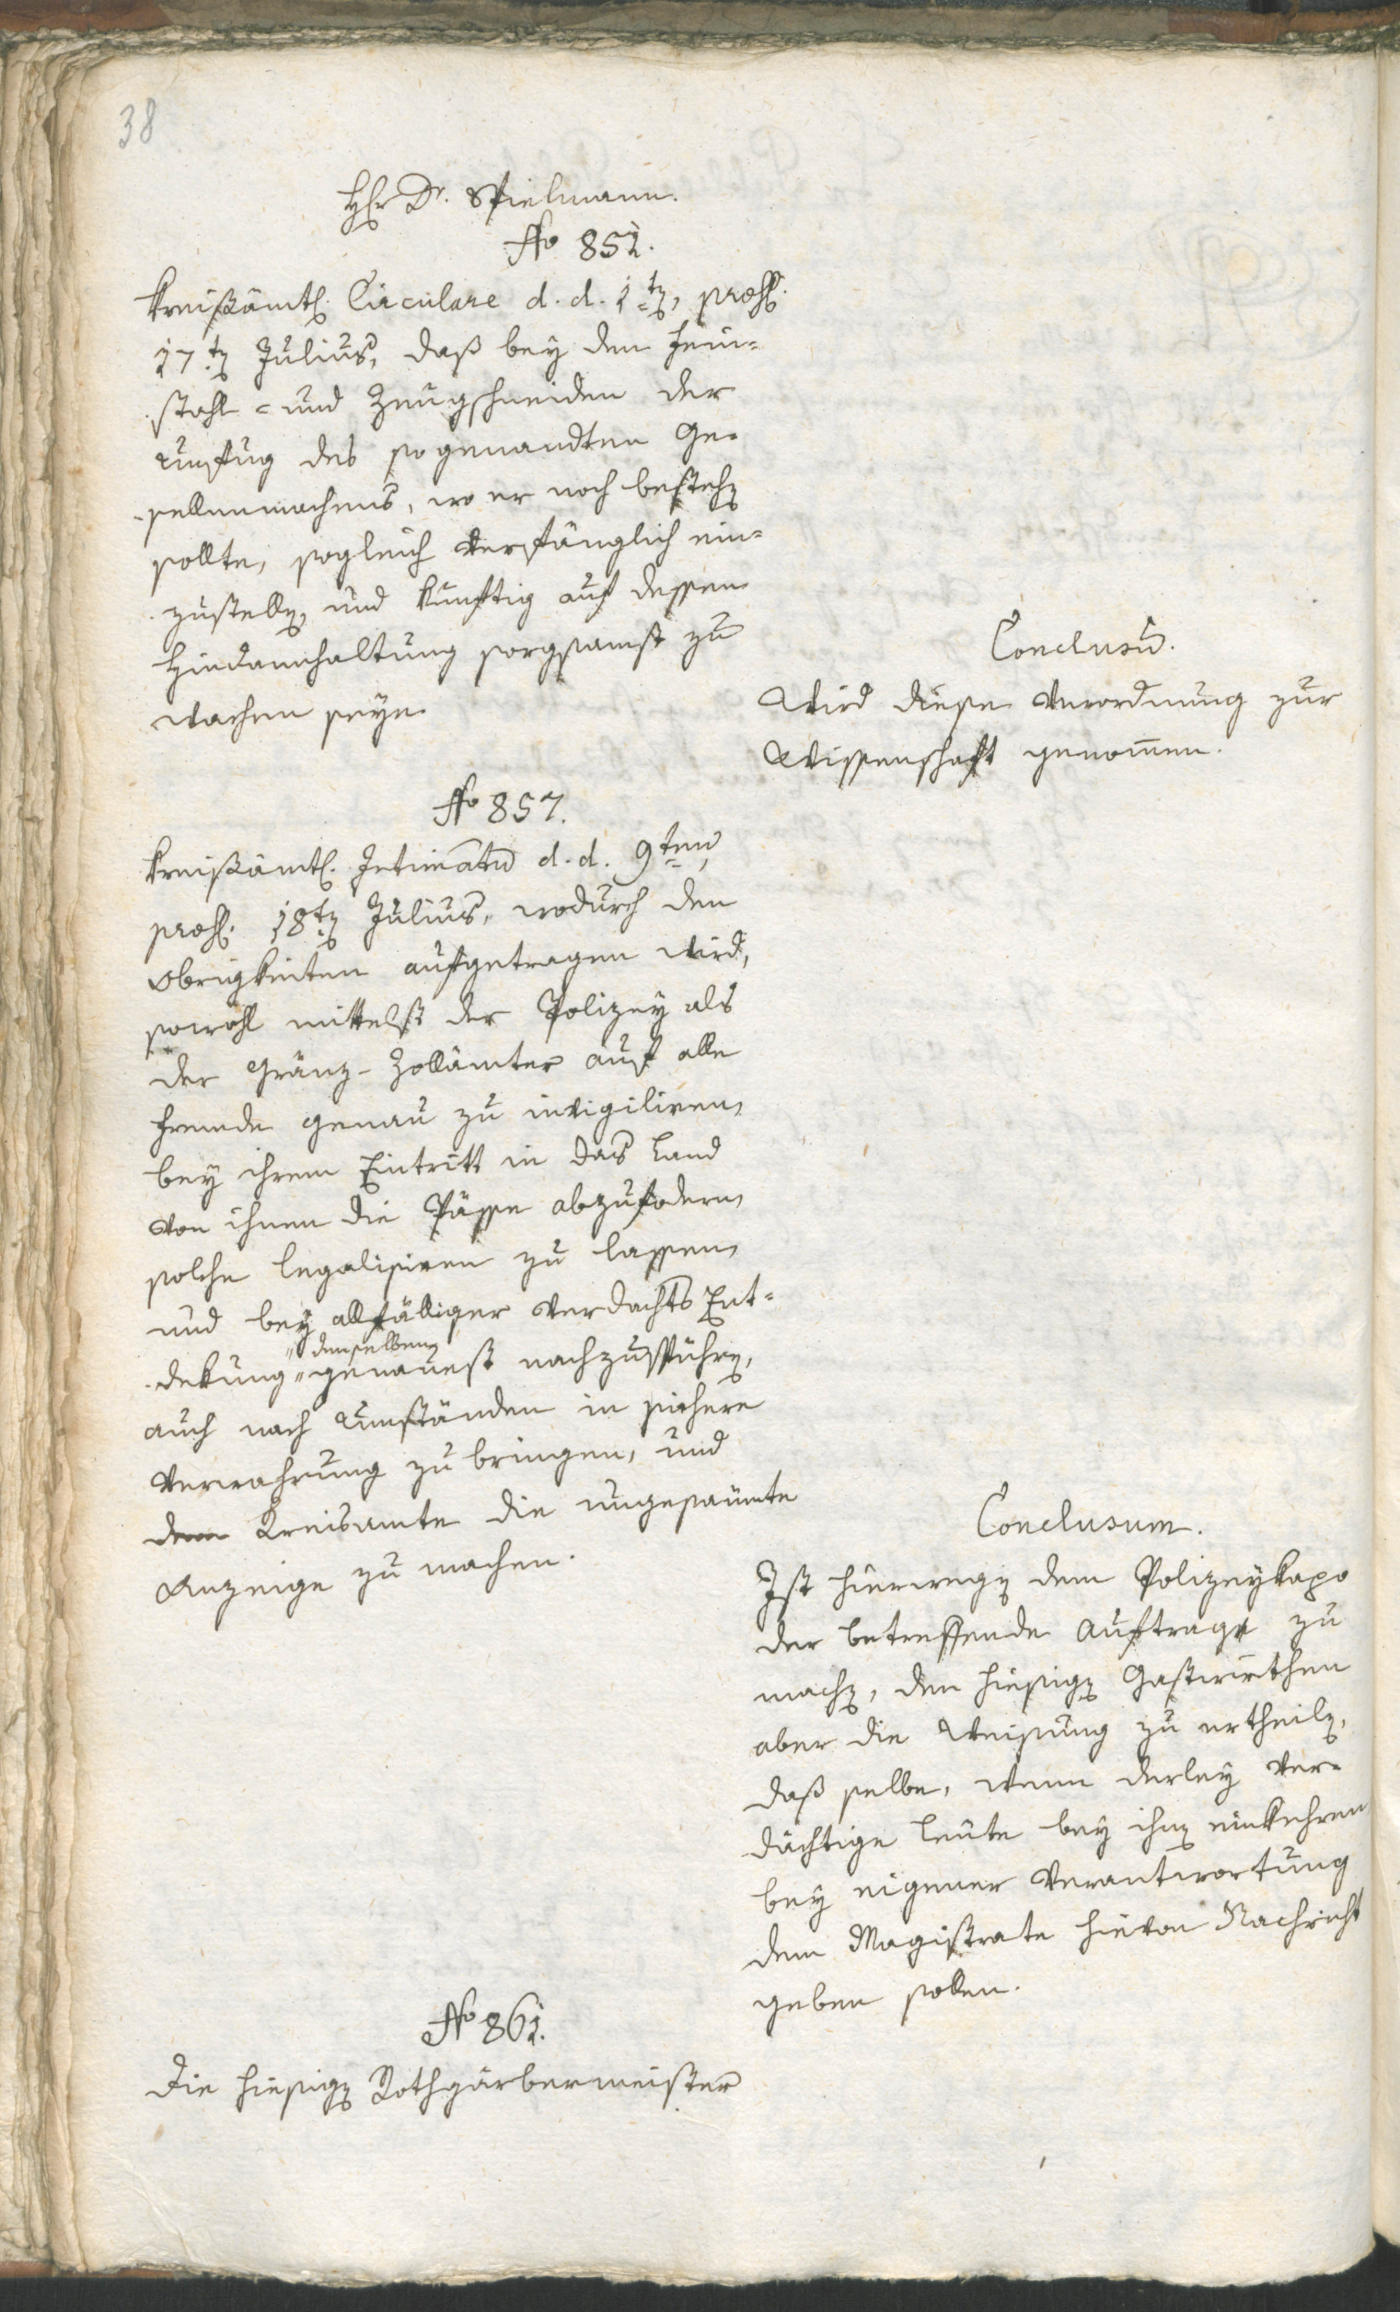 38
H[er]r Dr. Spielmann.
No 851.
kreißämtl. Circulare d. d. 1ten, præs.
17ten Julius, daß bey den Fein-
stahl- und Zeugschmieden der
Unfug des sogenandten Ge-
sellenmachens, wo er noch bestehen
sollte, sogleich verfänglich ein-
zustellen, und künftig auf dessen
Hindannhaltung sorgsamst zu
wachen seye.
Conclusum.
Wird diese Verordnung zur
Wissenschaft genommen.
No 857.
kreißämtl. Intimatum d. d. 9ten,
præs. 18ten Julius, wodurch den
Obrigkeiten aufgetragen wird,
sowohl mittelst der Polizey als
der Gränz-Zollämter auf alle
Fremde genau zu invigiliren,
bey ihrem Eintritt in das Land
von ihnen die Pässe abzufodern,
solche legalisiren zu lassen,
und bey allfälliger Verdachts Ent-
denselben
dekung genauest nachzuspühren,
auch nach Umständen in sichere
Verwahrung zu bringen, und
dem Kreisamte die ungesäumte
Anzeige zu machen.
Conclusum.
Ist hierwegen dem Polizeykapo
der betreffende Auftrage zu
machen, den hiesigen Gastwirthen
aber die Weisung zu ertheilen,
daß selbe, wenn derley ver-
dächtige Leute bey ihnen einkehren
bey eigener Verantwortung
dem Magistrate hievon Nachricht
geben sollen.
No 861.
Die hiesigen Rothgärbermeister